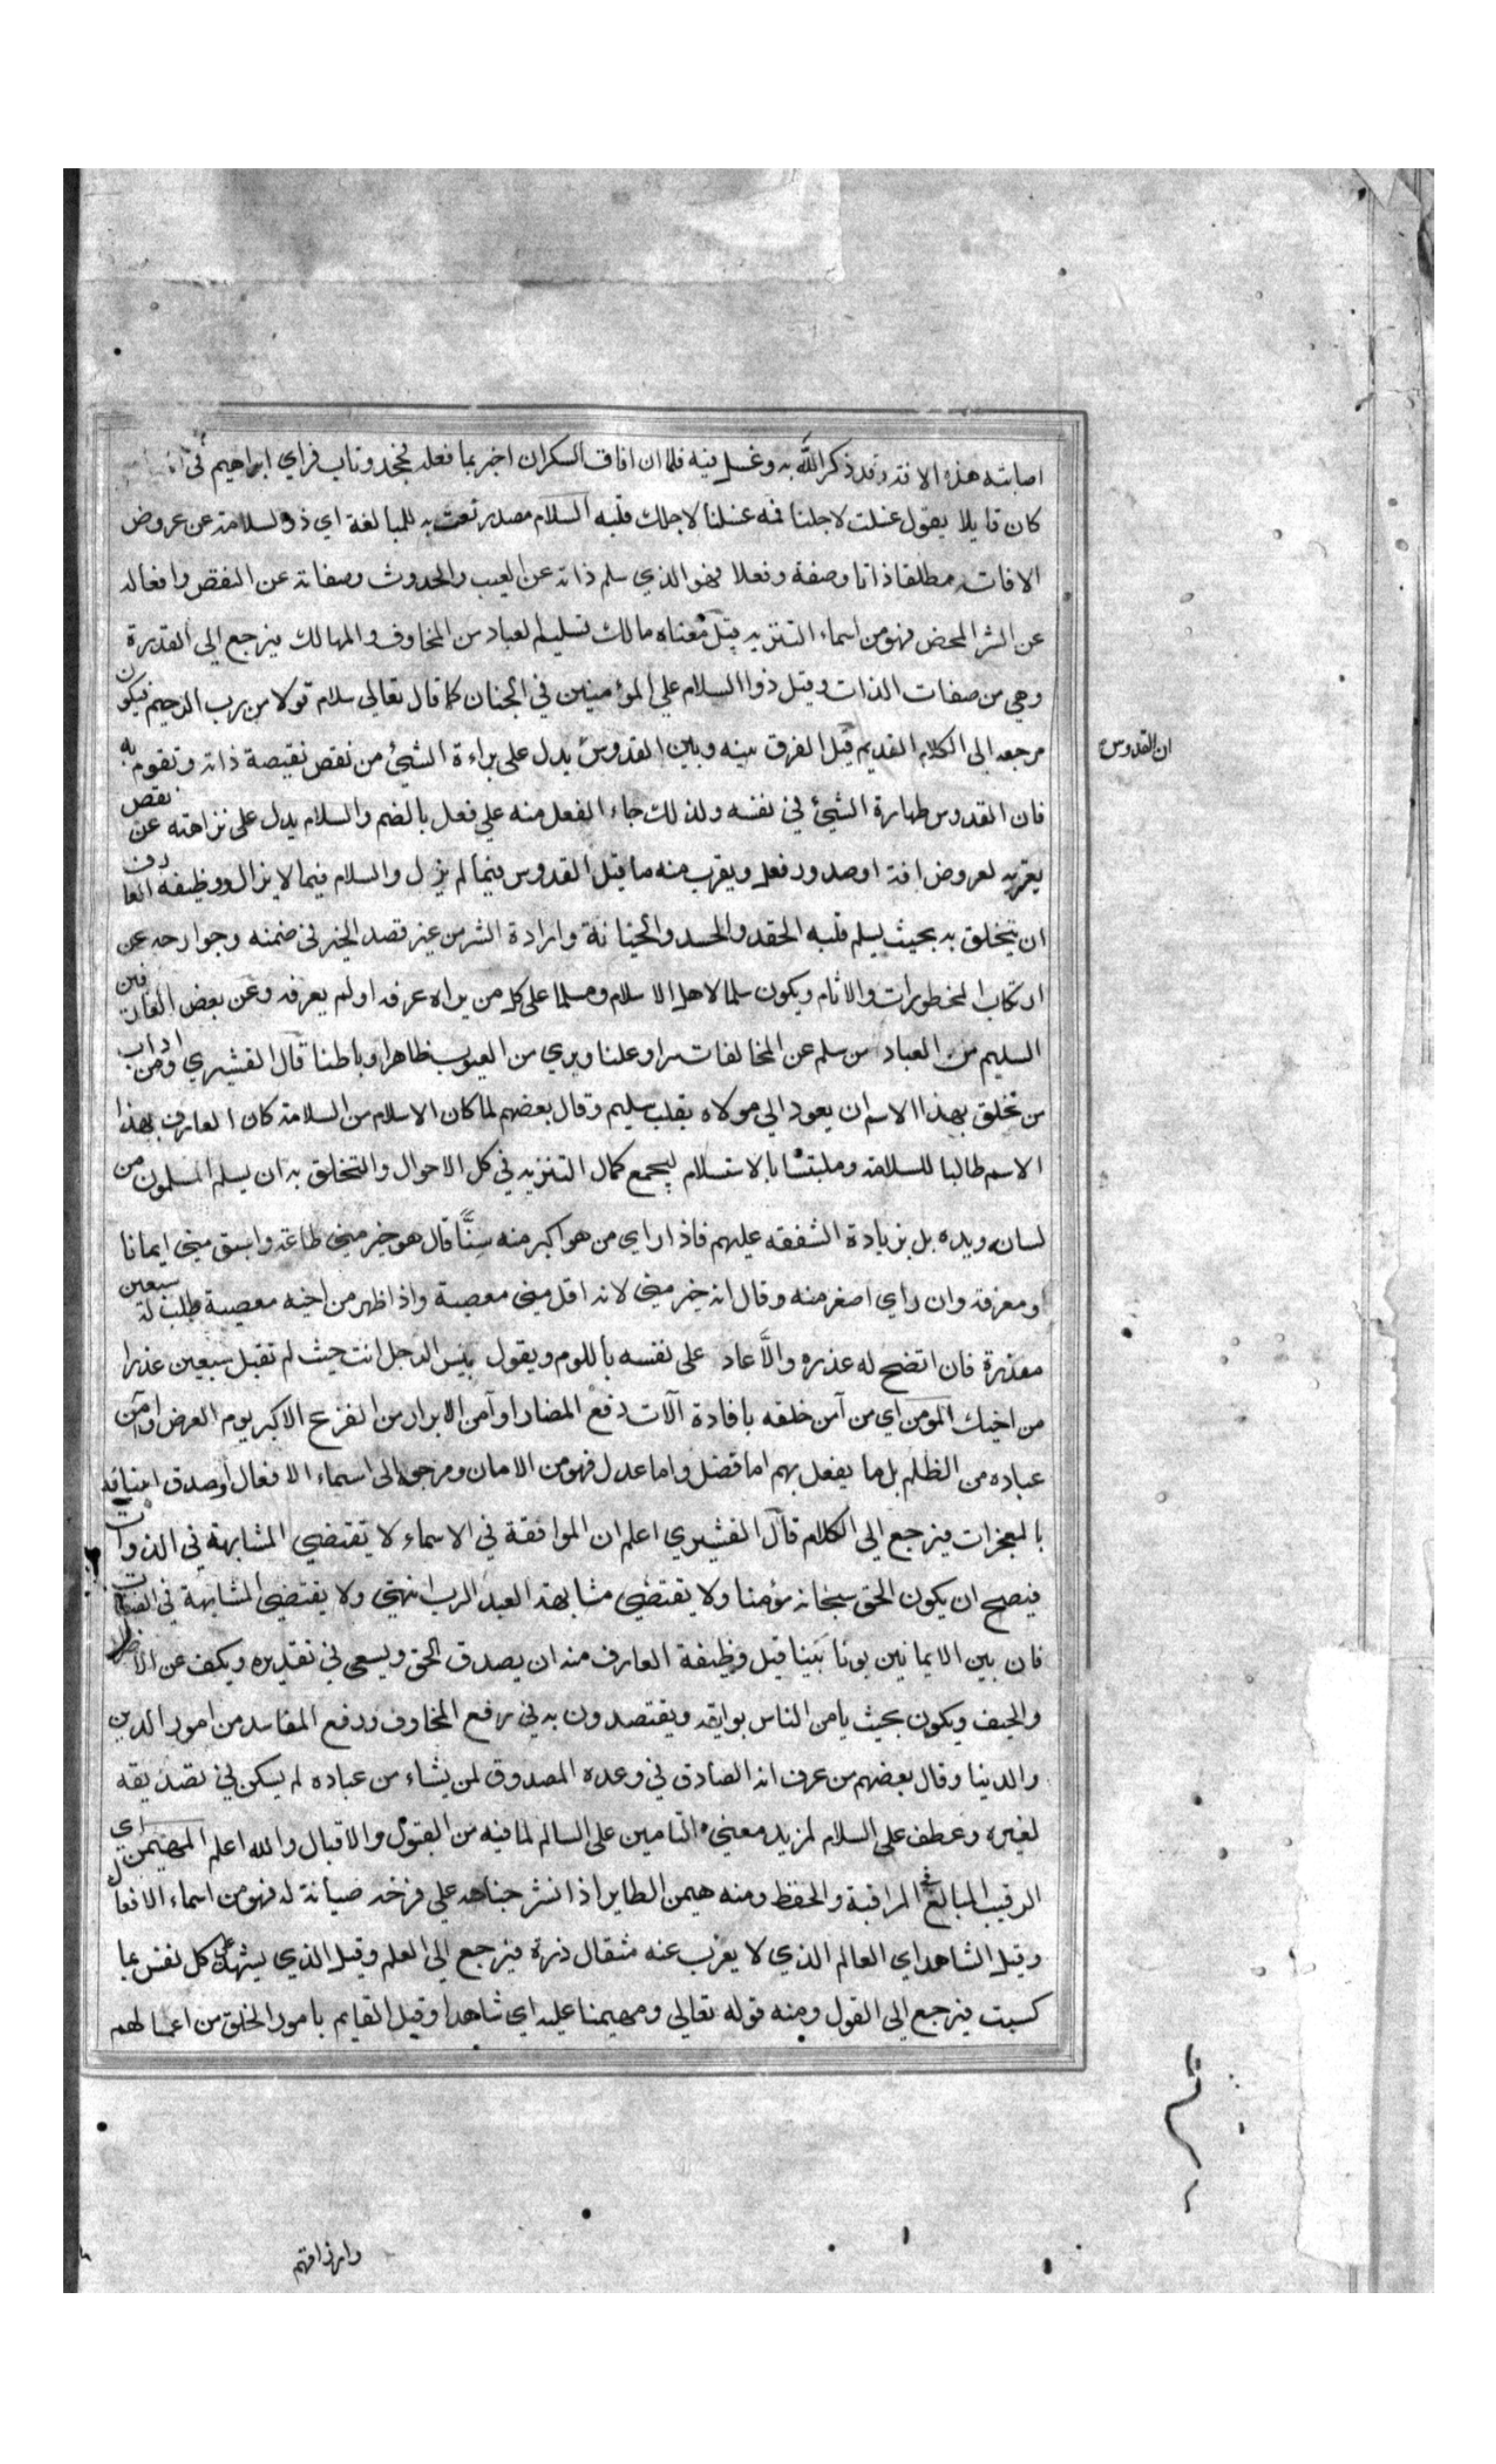 اصابته هذه الافة وقد ذكر الله به وغسل فيه فلما ان افاق السكران اخبر بما فعله فخجد وتاب فراي ابراهيم في
كان قايلا يقول غسلت لاجلنا فمه غسلنا لاجلك قلبه السلام مصدر نعت به للمبالغة اي ذو السلامة عن عروض
الافات مطلقا ذاتا وصفة وفعلا فهو الذي سلم ذاته عن العيب والحدوث وصفاته عن النقص وافعاله
عن الشر المحض فهو من اسماء التنزيه قيل معناه مالك تسليم العباد من المخاوف والمهالك فيرجع الي القدرة
وهي من صفات الذات وقيل ذوا السلام علي المؤمنين في الجنان كما قال تعالي سلام قولا من رب الرحيم فيكون
مرجعه الي الكلام القديم قيل الفرق بينه وبين القدوس يدل على براءة الشئ من نقص نقيصة ذاته وتقوم به
ان القدوس
فان القدوس طهارة الشئ في نفسه ولذلك جاء الفعل منه علي فعل بالضم والسلام يدل على نزاهته عن نقص
يعتريه لعروض افة او صدور فعل ويقرب منه ما قيل القدوس فيما لم يزل والسلام فيما لا يزال ووظيفه العارف
ان يتخلق به بحيث يسلم قلبه الحقد والحسد والخيانة وارادة الشر من غير قصد الخير في ضمنه وجوارحه عن
ارتكاب المخطورات والاثام ويكون سلما لاهل الاسلام ومسلما على كل من يراه عرفه او لم يعرفه وعن بعض العارفين
السليم من العباد من سلم عن المخالفات سرا وعلنا وبري من العيوب ظاهرا وباطنا قال القشيري ومن اداب
من تخلق بهذا الاسم ان يعود الي مولاه بقلب سليم وقال بعضهم لما كان الاسلام من السلامة كان العارف بهذا
الاسم طالبا للسلامة وملتبسا بالاستسلام ليجمع كمال التنزيه في كل الاحوال والتخلق به ان يسلم المسلمون من
لسانه ويده بل بزيادة الشفقه عليهم فاذا راي من هو اكبر منه سنًّا قال هو خير مني طاعة واسبق مني ايمانا
ومعرفة وان راي اصغر منه وقال انه خير مني لانه اقل مني معصية واذا ظهر من اخيه معصية طلب له سبعين
معذرة فان اتضح له عذره والاّ عاد على نفسه باللوم ويقول بئس الرجل انت حيث لم تقبل سبعين عذرا
من اخيك المومن اي من آمن خلقه بافادة آلات دفع المضار او آمن الابرار من الفزع الاكبر يوم العرض او آمن
عباده من الظلم بل ما يفعل بهم اما فضل واما عدل فهو من الامان ومرجعه الى اسماء الافعال او صدق انبيائه
بالمعجزات فيرجع الي الكلام قال القشيري اعلم ان الموافقة في الاسماء لا تقتضي المشابهة في الذوات
فيصح ان يكون الحق سبحانه مؤمنا ولا يقتضي مشابهة العبد الرب انتهي ولا يقتضي المشابهة في الصفات
فان بين الايمانين بونا بينا قيل وظيفة العارف منه ان يصدق الحق ويسعي في تقديره ويكف عن الاضرار
والحيف ويكون بحيث يامن الناس بوايقه ويقتصدون به في رفع المخاوف ودفع المفاسد من امور الدين
والدنيا وقال بعضهم من عرف انه الصادق في وعده المصدوق لمن يشاء من عباده لم يسكن في تصديقه
لغيره وعطف على السلام لمزيد معني التامين على السالم لما فيه من القبول والاقبال والله اعلم المهيمن اي
الرقيب المبالغ في المراقبة والحفظ ومنه هيمن الطاير اذا نشر جناحه علي فرخه صيانة له فهو من اسماء الافعال
وقيل الشاهد اي العالم الذي لا يعزب عنه مثقال ذرة فيرجع الي العلم وقيل الذي يشهد علي كل نفس بما
كسبت فيرجع الي القول ومنه قوله تعالي ومهيمنا عليه اي شاهدا وقيل القايم بامور الخلق من اعمالهم
وارزاقهم